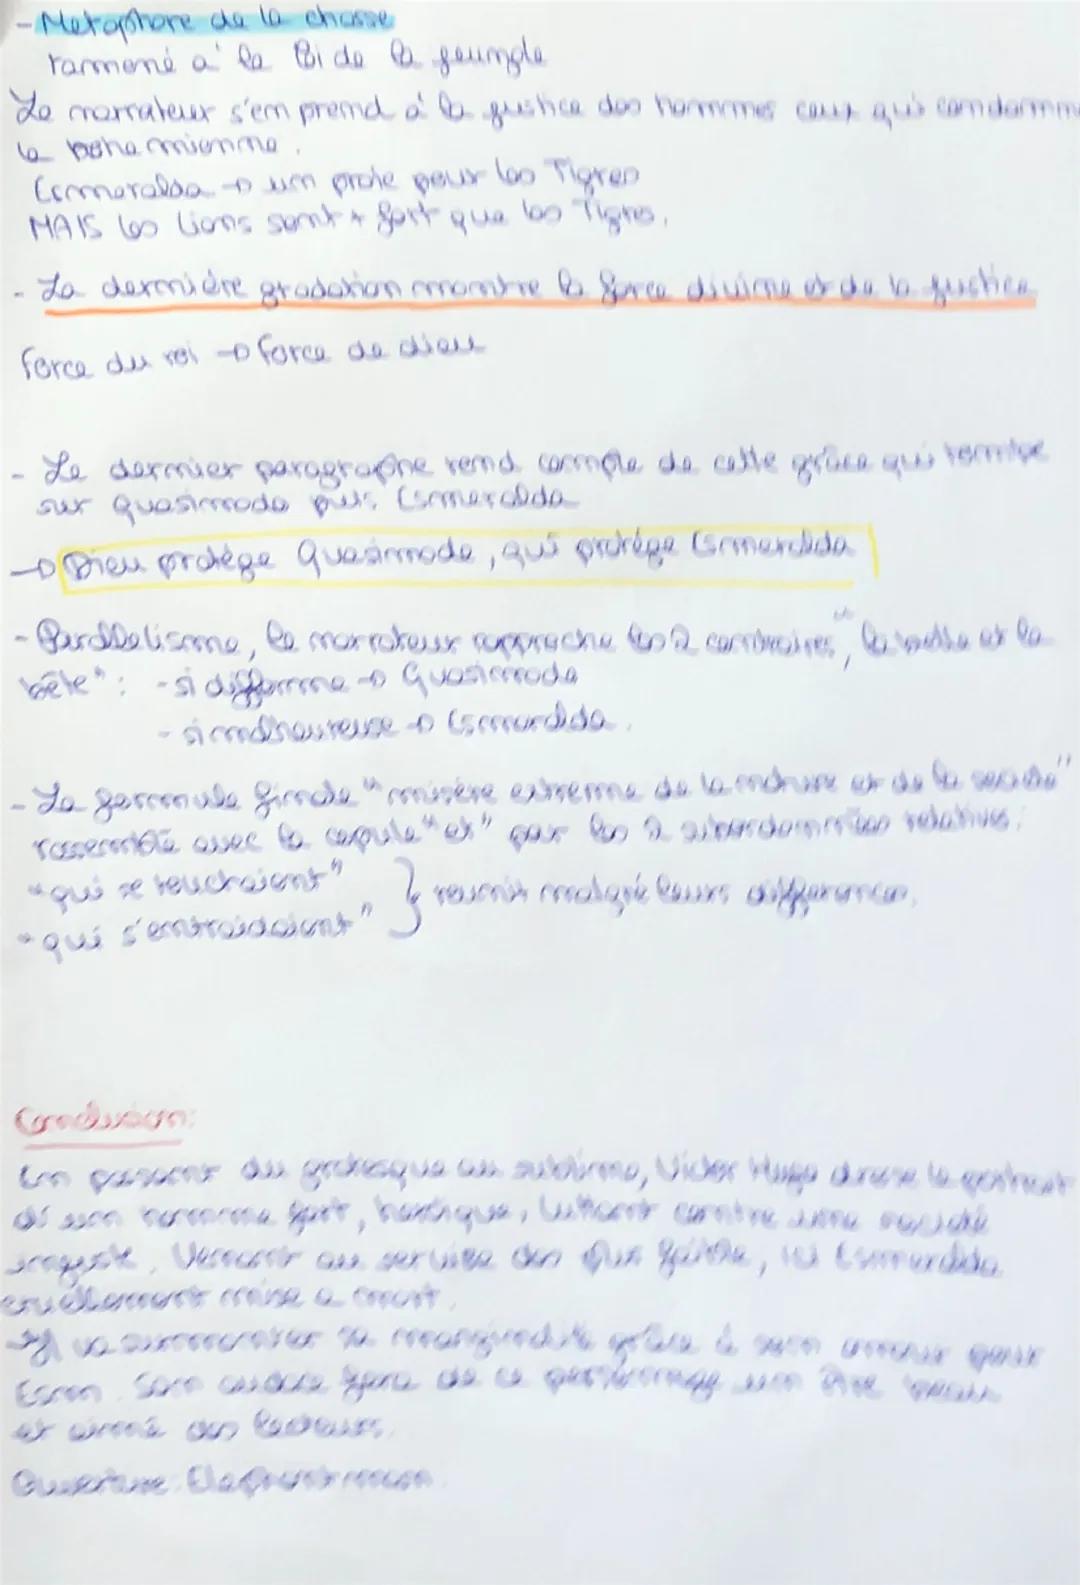 - Metaphore de la chasse
ramené a' la loi de la jeungle
Le narrateur s'en prend a' la justice des hommes ceux qui condamne
la bohemienne.
Esmeralda → un proie pour les Tigres
MAIS les lions sont + fort que les Tigres.
- La dernière gradation montre la force divine et de la justice
force du roi → force de dieu
- Le dernier paragraphe rend compte de cette grâce qui tombe
sur quasimodo puis Esmeralda
→ Dieu protège Quasimodo, qui protège Esmeralda
- Parallelisme, le narrateur rapproche les 2 contraires, "la belle et la
bête": - si difforme → Quasimodo
- si malheureuse → Esmeralda.
- La formule finale "misère extreme de la nature et de la société"
rassemble avec la copule "et" par les 2 subordonnées relatives:
"qui se touchaient"
"qui s'entraidaient" } reunit malgré leurs differences.
Conclusion:
En passant du grotesque au sublime, Victor Hugo dresse le portrait
d'un homme fort, heroique, luttant contre une société
injuste. Venant au service des plus faible, ici Esmeralda
cruellement mise a mort.
Il va surmonter sa marginalité grâce à son amour pour
Esm. Son audace fera de ce personnage un être beau
et aimé des lecteurs.
Ouverture: Elephant man